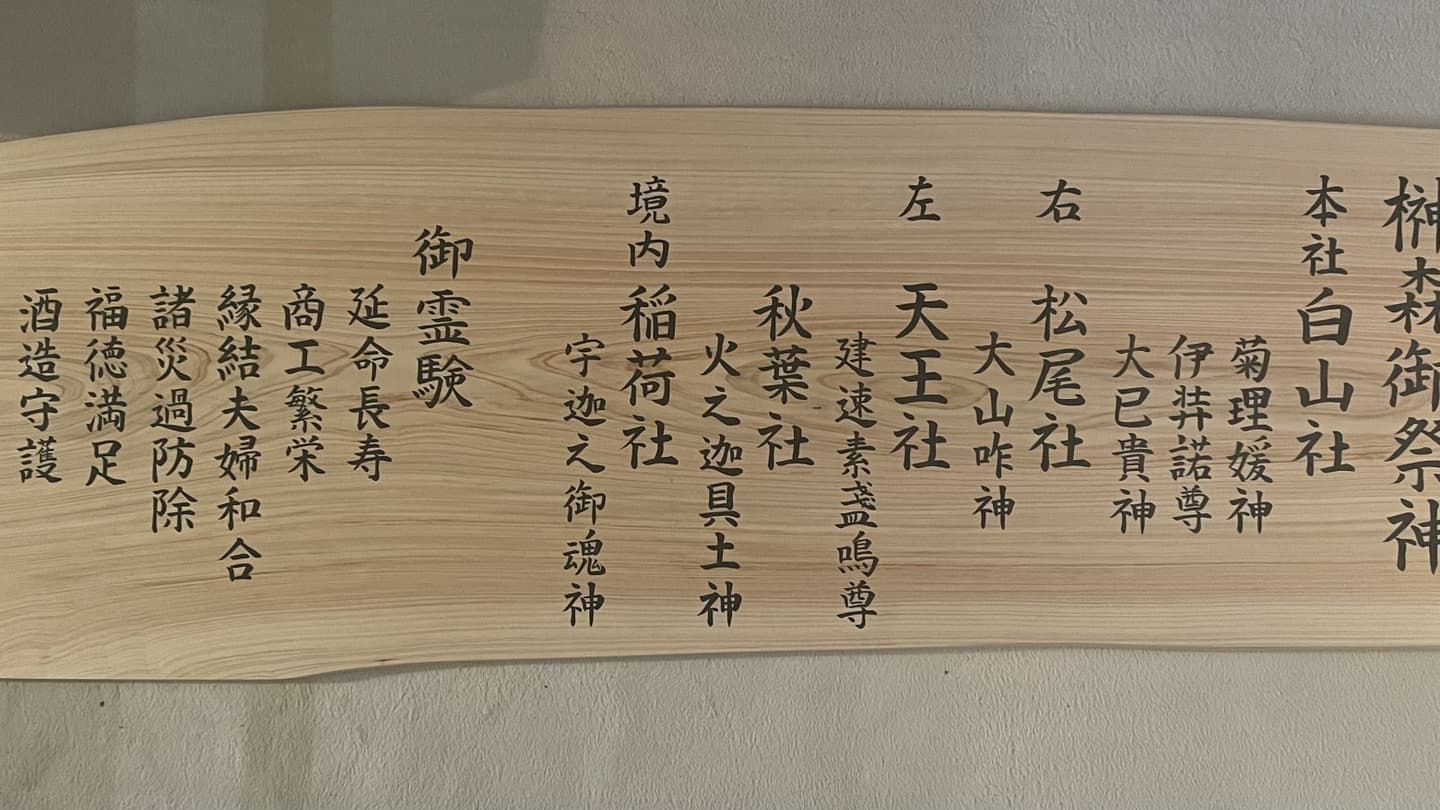 榊森御祭神
本社 白山社
菊理媛神
伊弉諾尊
大已貴神
右 松尾社
大山咋神
左 天王社
建速素盞嗚尊
秋葉社
火之迦具土神
境内 稲荷社
宇迦之御魂神
御霊験
延命長寿
商工繁栄
縁結夫婦和合
諸災過防除
福徳満足
酒造守護